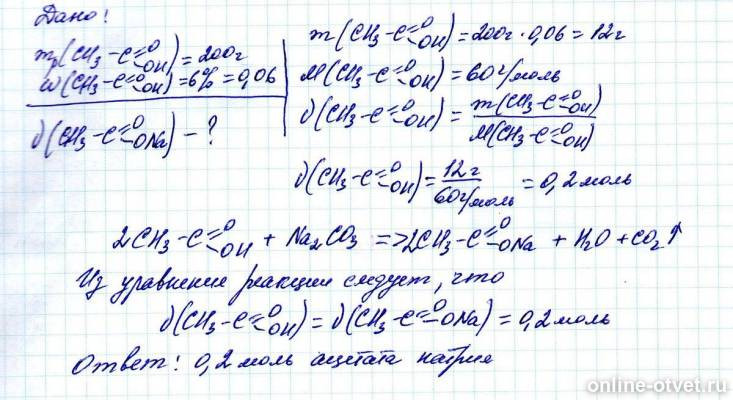 Дано:
mр(CH3-C=O-OH)=200г
ω(CH3-C=O-OH)=6%=0,06
ν(CH3-C=O-ONa)-?
m(CH3-C=O-OH)=200г·0,06=12г
M(CH3-C=O-OH)=60г/моль
ν(CH3-C=O-OH)=m(CH3-C=O-OH)/M(CH3-C=O-OH)
ν(CH3-C=O-OH)=12г/60г/моль=0,2моль
2CH3-C=O-OH+Na2CO3=>2CH3-C=O-ONa+H2O+CO2↑
Из уравнения реакции следует, что
ν(CH3-C=O-OH)=ν(CH3-C=O-ONa)=0,2моль
Ответ: 0,2 моль ацетата натрия
online-otvet.ru